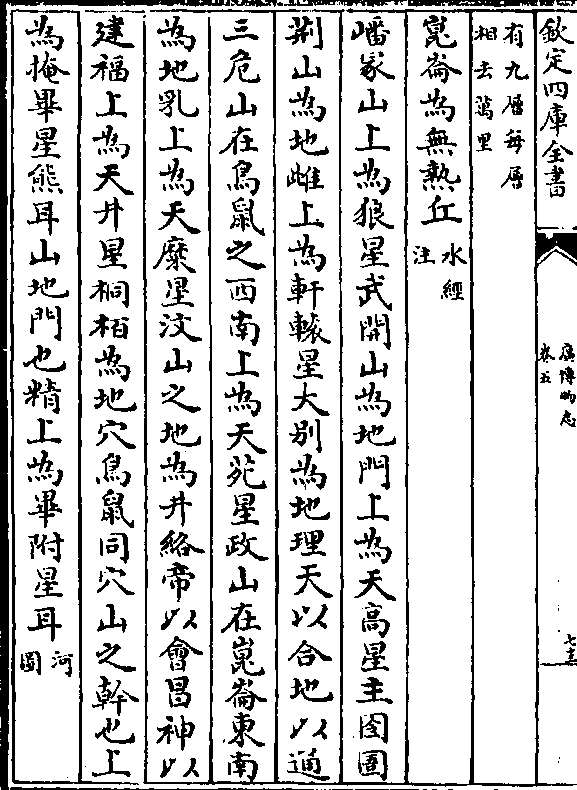 欽定四庫全書
廣博物志
卷五
七十三
有九層每層
相去萬里
崑崙為無熱丘水經
注
嶓冢山上為狼星武開山為地門上為天高星主囹圄
荆山為地雌上為軒轅星大别為地理天以合地以通
三危山在鳥鼠之西南上為天苑星政山在崑崙東南
為地乳上為天糜星汶山之地為井絡帝以會昌神以
建福上為天井星桐栢為地穴鳥鼠同穴山之幹也上
為掩畢星熊耳山地門也精上為畢附星耳河
圖